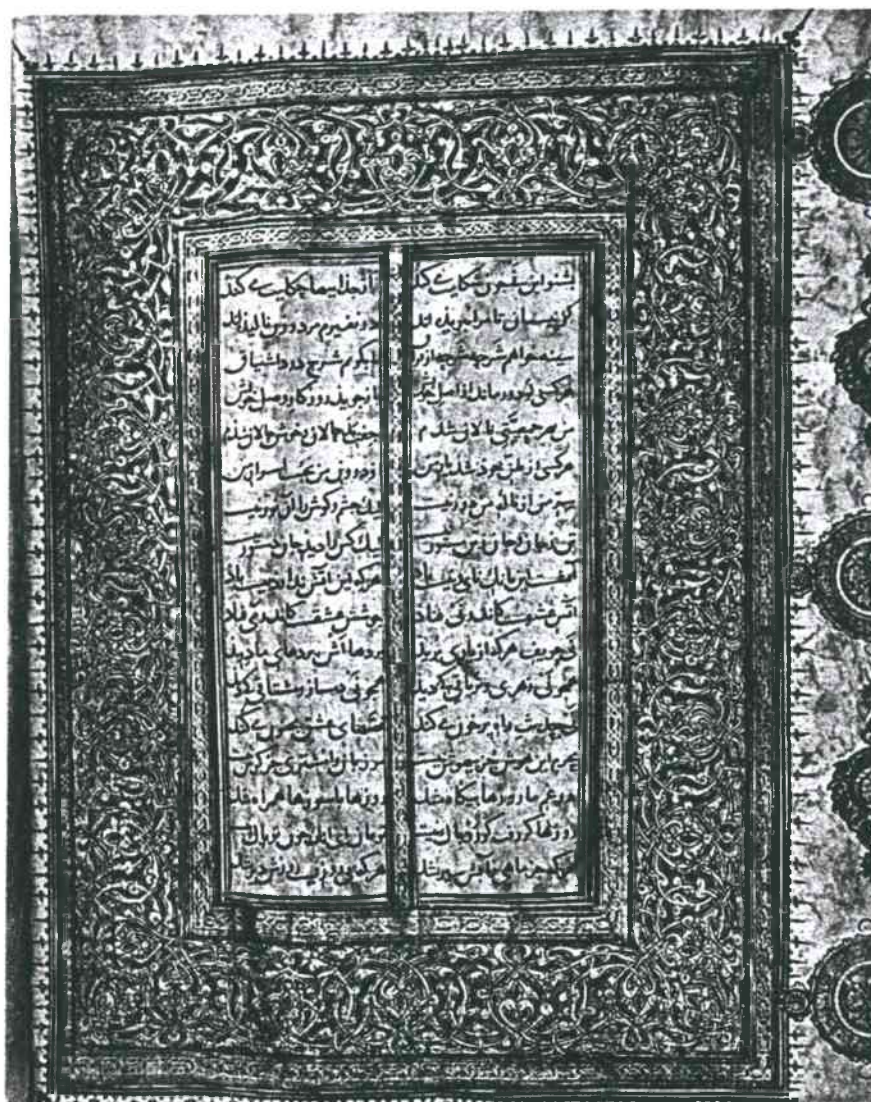 بشنو این نی چون شکایت می کند از جداییها حکایت می کند
کز نیستان تا مرا ببریده اند در نفیرم مرد و زن نالیده اند
سینه خواهم شرحه شرحه از فراق تا بگویم شرح درد اشتیاق
هر کسی کو دور ماند از اصل خویش باز جوید روزگار وصل خویش
من بهر جمعیتی نالان شدم جفت بدحالان و خوش حالان شدم
هر کسی از ظن خود شد یار من از درون من نجست اسرار من
سر من از ناله من دور نیست لیک چشم و گوش را آن نور نیست
تن ز جان و جان ز تن مستور نیست لیک کس را دید جان دستور نیست
آتشست این بانگ نای و نیست باد هر که این آتش ندارد نیست باد
آتش عشقست کاندر نی فتاد جوشش عشقست کاندر می فتاد
نی حریف هر که از یاری برید پردهااش پردهای ما درید
همچو نی زهری و تریاقی که دید همچو نی دمساز و مشتاقی که دید
نی حدیث راه پر خون می کند قصهای عشق مجنون می کند
محرم این هوش جز بیهوش نیست مر زبان را مشتری جز گوش نیست
در غم ما روزها بیگاه شد روزها با سوزها همراه شد
روزها گر رفت گو رو باک نیست تو بمان ای آنک چون تو پاک نیست
هرک جز ماهی ز آبش سیر شد هرک بی روزیست روزش دیر شد